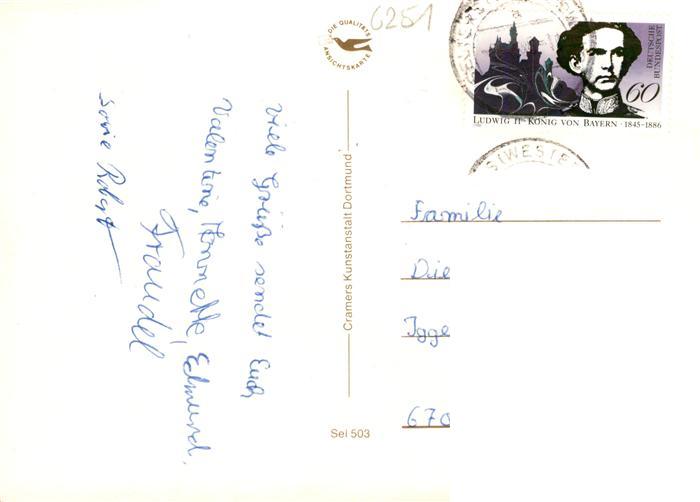 DIE QUALITÄTS
ANSICHTSKARTE
6251
DEUTSCHE
BUNDESPOST
60
LUDWIG II · KÖNIG VON BAYERN · 1845-1886
Viele Grüße sendet Euch
Valentine, Edmund,
Traudel
sowie Robert
Cramers Kunstanstalt Dortmund
Sei 503
Familie
Die
Igge
670